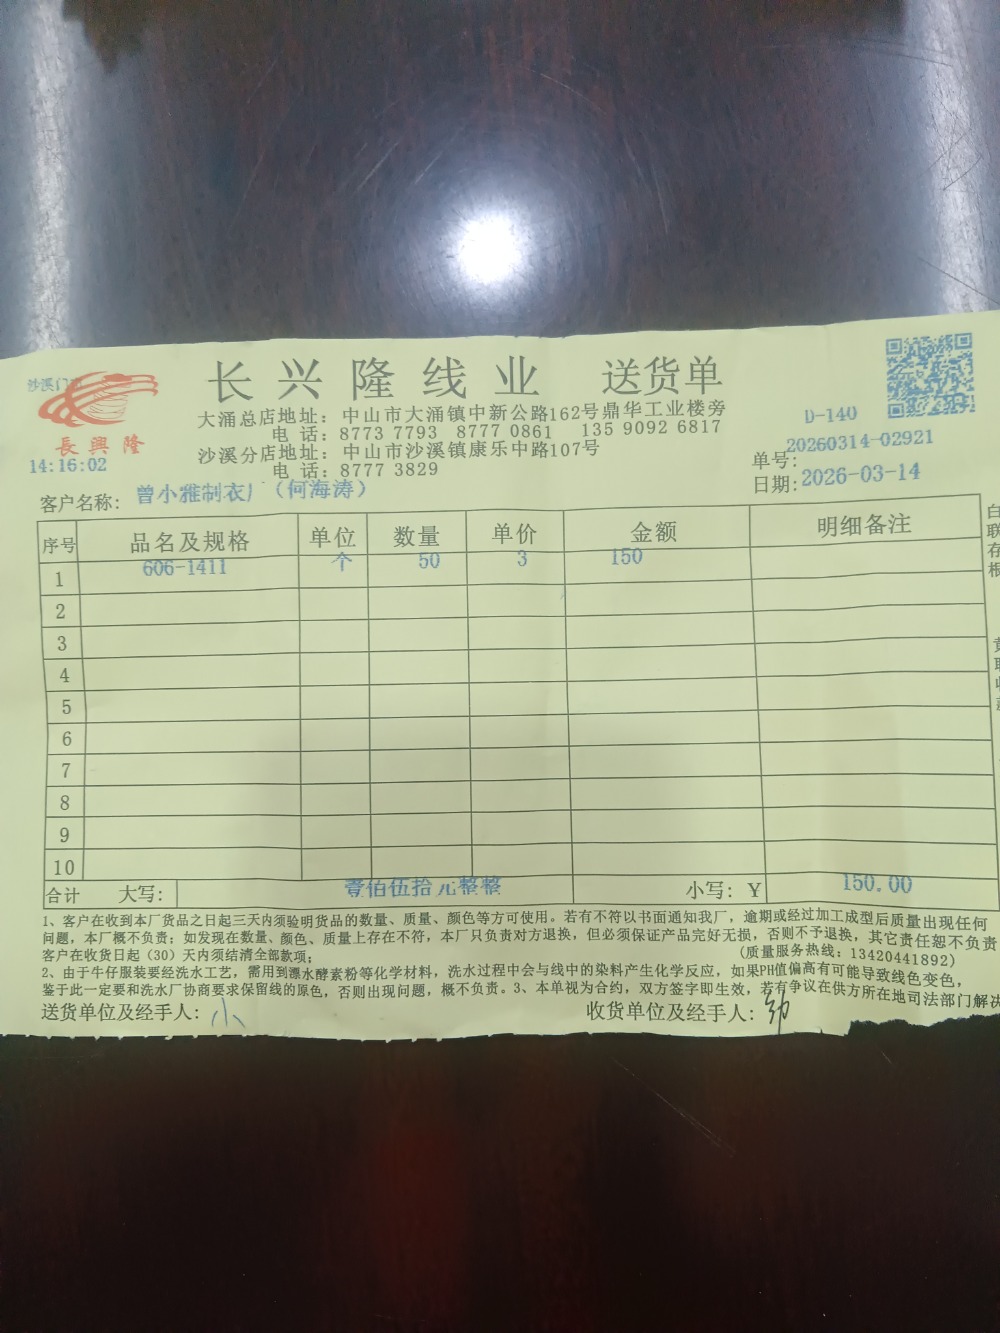 长兴隆线业 送货单
沙溪门
長興隆
14:16:02
大涌总店地址：中山市大涌镇中新公路162号鼎华工业楼旁
电 话：8773 7793 8777 0861 135 9092 6817
沙溪分店地址：中山市沙溪镇康乐中路107号
电 话：8777 3829
D-140
单号：20260314-02921
日期：2026-03-14
客户名称：曾小雅制衣厂（何海涛）
序号 品名及规格 单位 数量 单价 金额 明细备注
1 606-1411 个 50 3 150
2
3
4
5
6
7
8
9
10
合计 大写：壹佰伍拾元整整 小写：Y 150.00
1、客户在收到本厂货品之日起三天内须验明货品的数量、质量、颜色等方可使用。若有不符以书面通知我厂，逾期或经过加工成型后质量出现任何
问题，本厂概不负责；如发现在数量、颜色、质量上存在不符，本厂只负责对方退换，但必须保证产品完好无损，否则不予退换，其它责任恕不负责
客户在收货日起（30）天内须结清全部款项；（质量服务热线：13420441892）
2、由于牛仔服装要经洗水工艺，需用到漂水酵素粉等化学材料，洗水过程中会与线中的染料产生化学反应，如果PH值偏高有可能导致线色变色，
鉴于此一定要和洗水厂协商要求保留线的原色，否则出现问题，概不负责。3、本单视为合约，双方签字即生效，若有争议在供方所在地司法部门解决
送货单位及经手人：小
收货单位及经手人：
白联存根